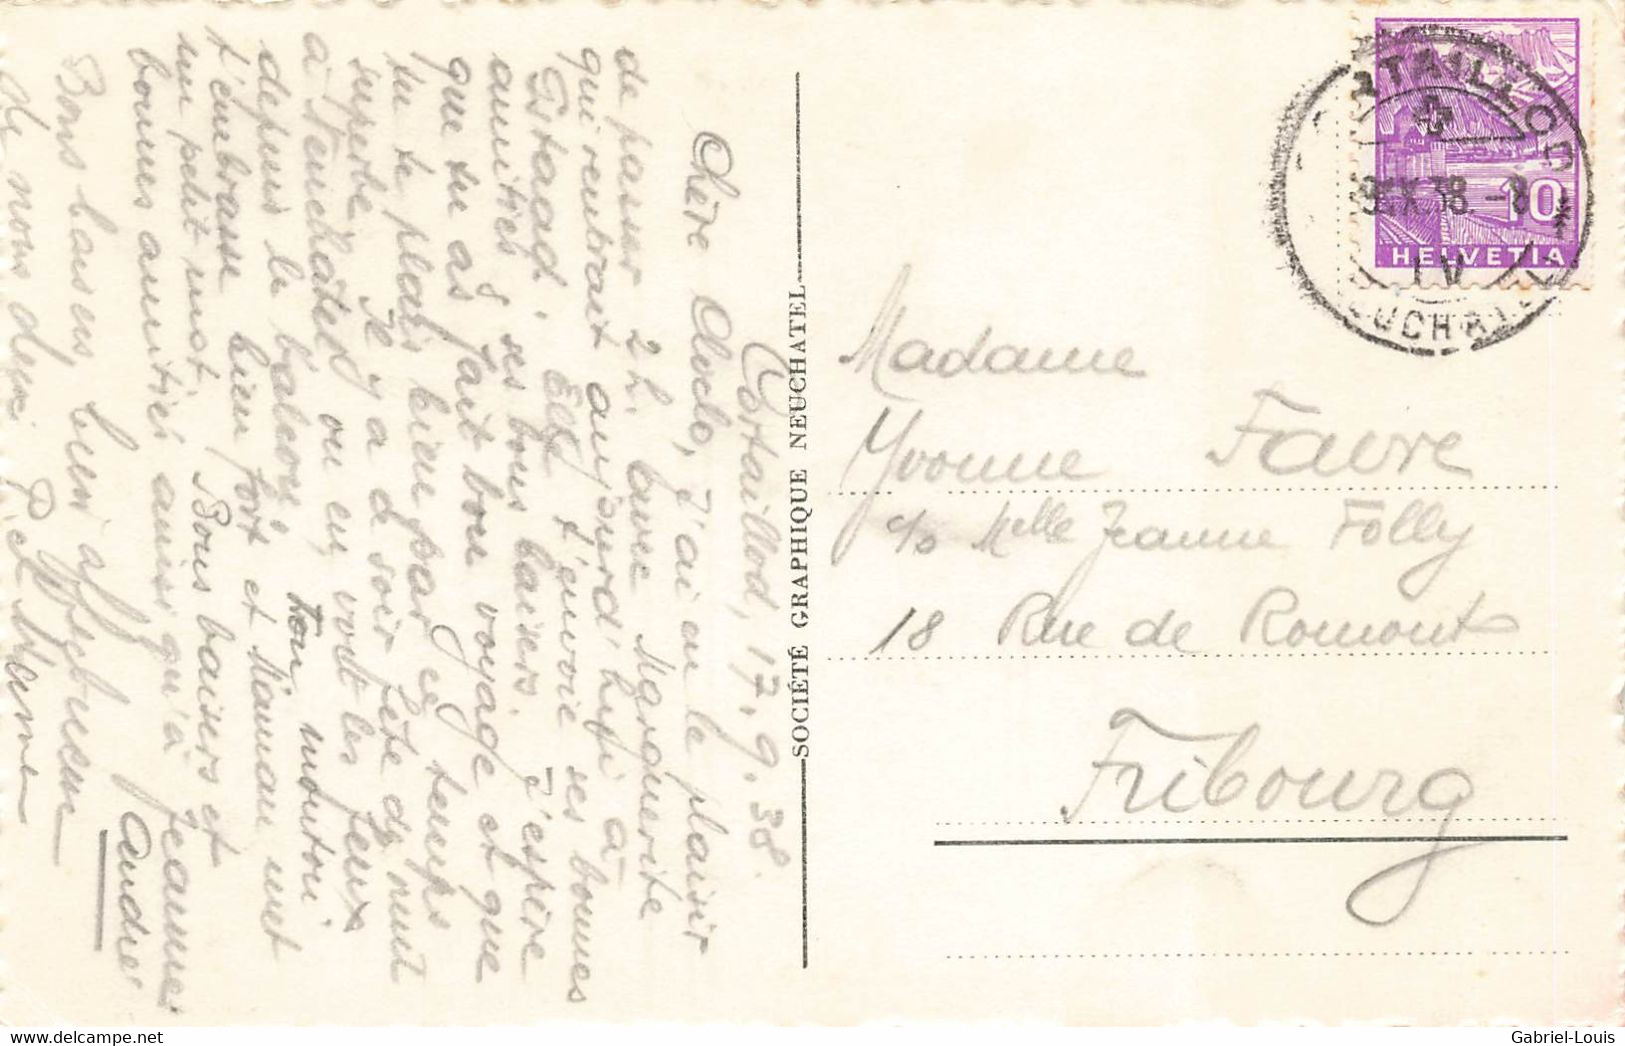 Cortaillod, 17.9.38.
Chère Cloclo, J'ai eu le plaisir
de passer 2 h. avec Marguerite
qui rentrait aujourd'hui à
Gstaad. Elle t'envoie ses bonnes
amitiés & ses bons baisers. J'espère
que tu as fait bon voyage et que
tu te plais bien par ce temps
superbe. Je y a ce soir fête de nuit
à Neuchâtel, où on voit les feux
depuis le balcon. Ton mouton
t'embrasse bien fort et Maman met
un petit mot. Bons baisers et
bonnes amitiés ainsi qu'à Jeanne.
André
Bons baisers, bien affectueux
de nous deux
SOCIÉTÉ GRAPHIQUE NEUCHATEL
HELVETIA
10
CORTAILLOD
IX.38.-8
IV
(NEUCHÂTEL)
Madame
Yvonne Favre
c/o Melle Jeanne Folly
18 Rue de Romont
Fribourg
Gabriel-Louis